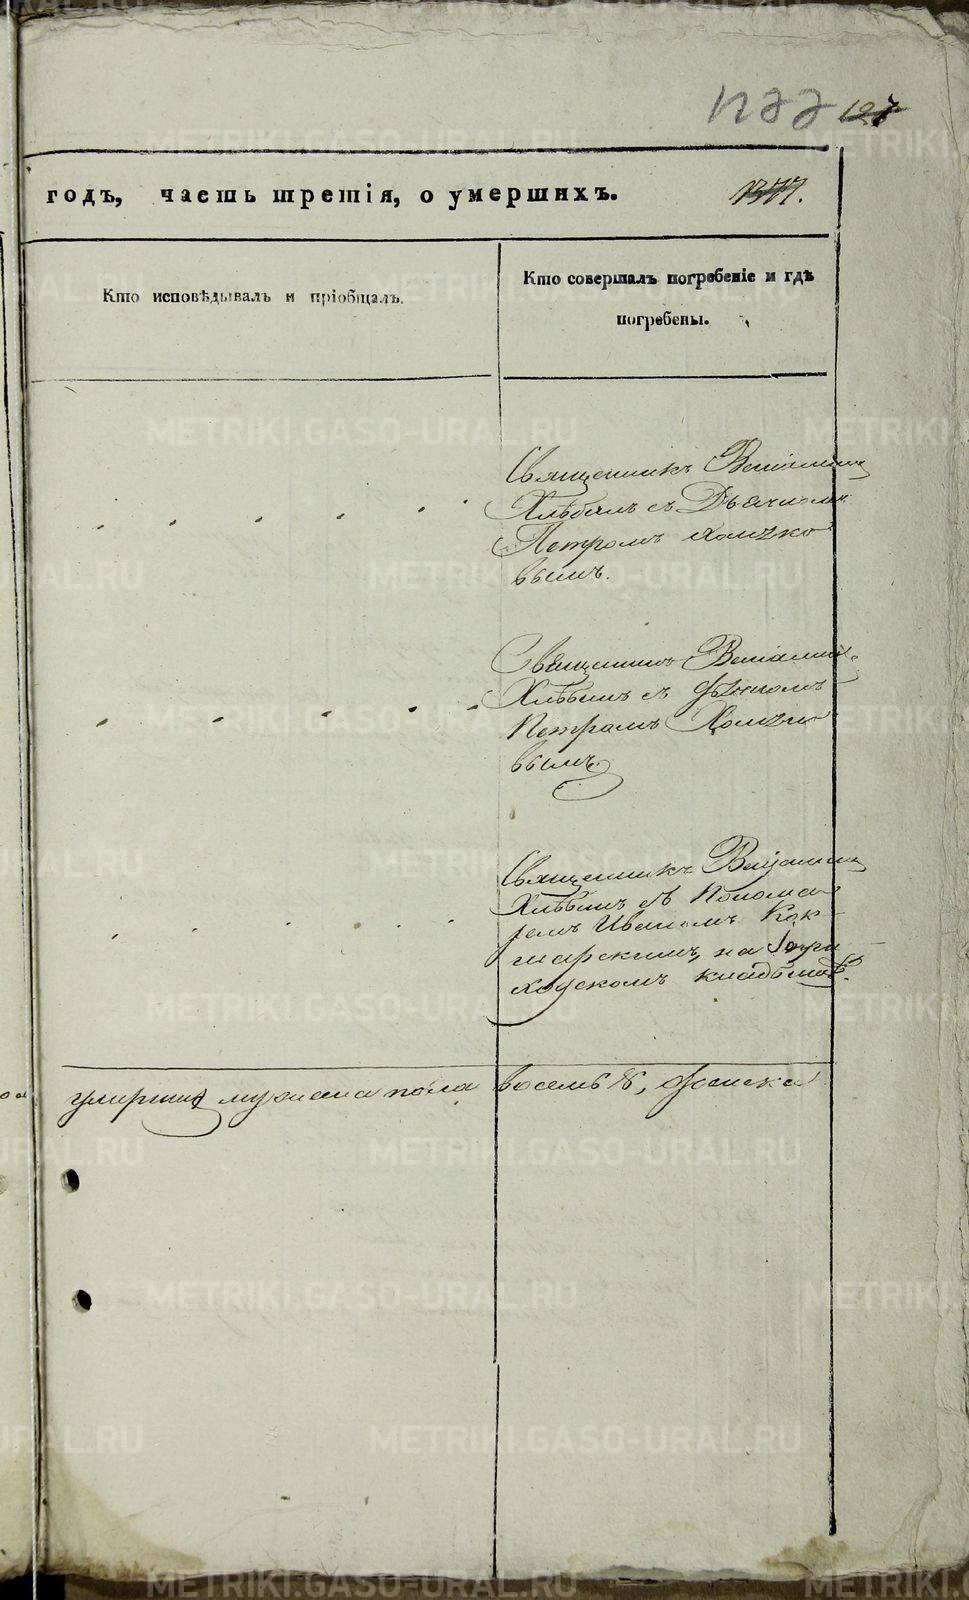 1177 127
годъ, часть третія, о умершихъ. 1377.
Кто исповѣдывалъ и пріобщалъ.
Кто совершалъ погребеніе и гдѣ
погребены.
Священникъ Веніаминъ
съ Дьячкомъ
Петромъ Хомяко
вымъ.
Священникъ Веніаминъ
съ Дьячкомъ
Петромъ Хомяко
вымъ.
Священникъ Веніаминъ
съ Понома
ремъ Иваномъ Кок
шарскимъ, на При
ходскомъ кладбищѣ.
умершихъ мужеска пола восемь 8, женска
METRIKI.GASO-URAL.RU